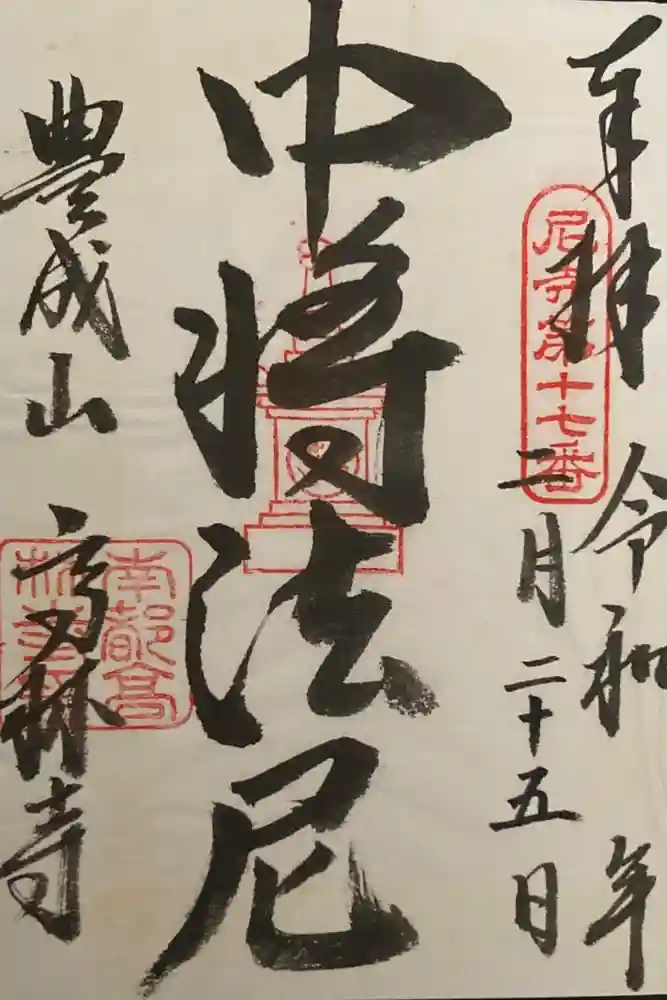 奉拝
令和 年
二月二十五日
尼寺第十七番
中将法尼
豊成山
高林寺
南都高
林寺